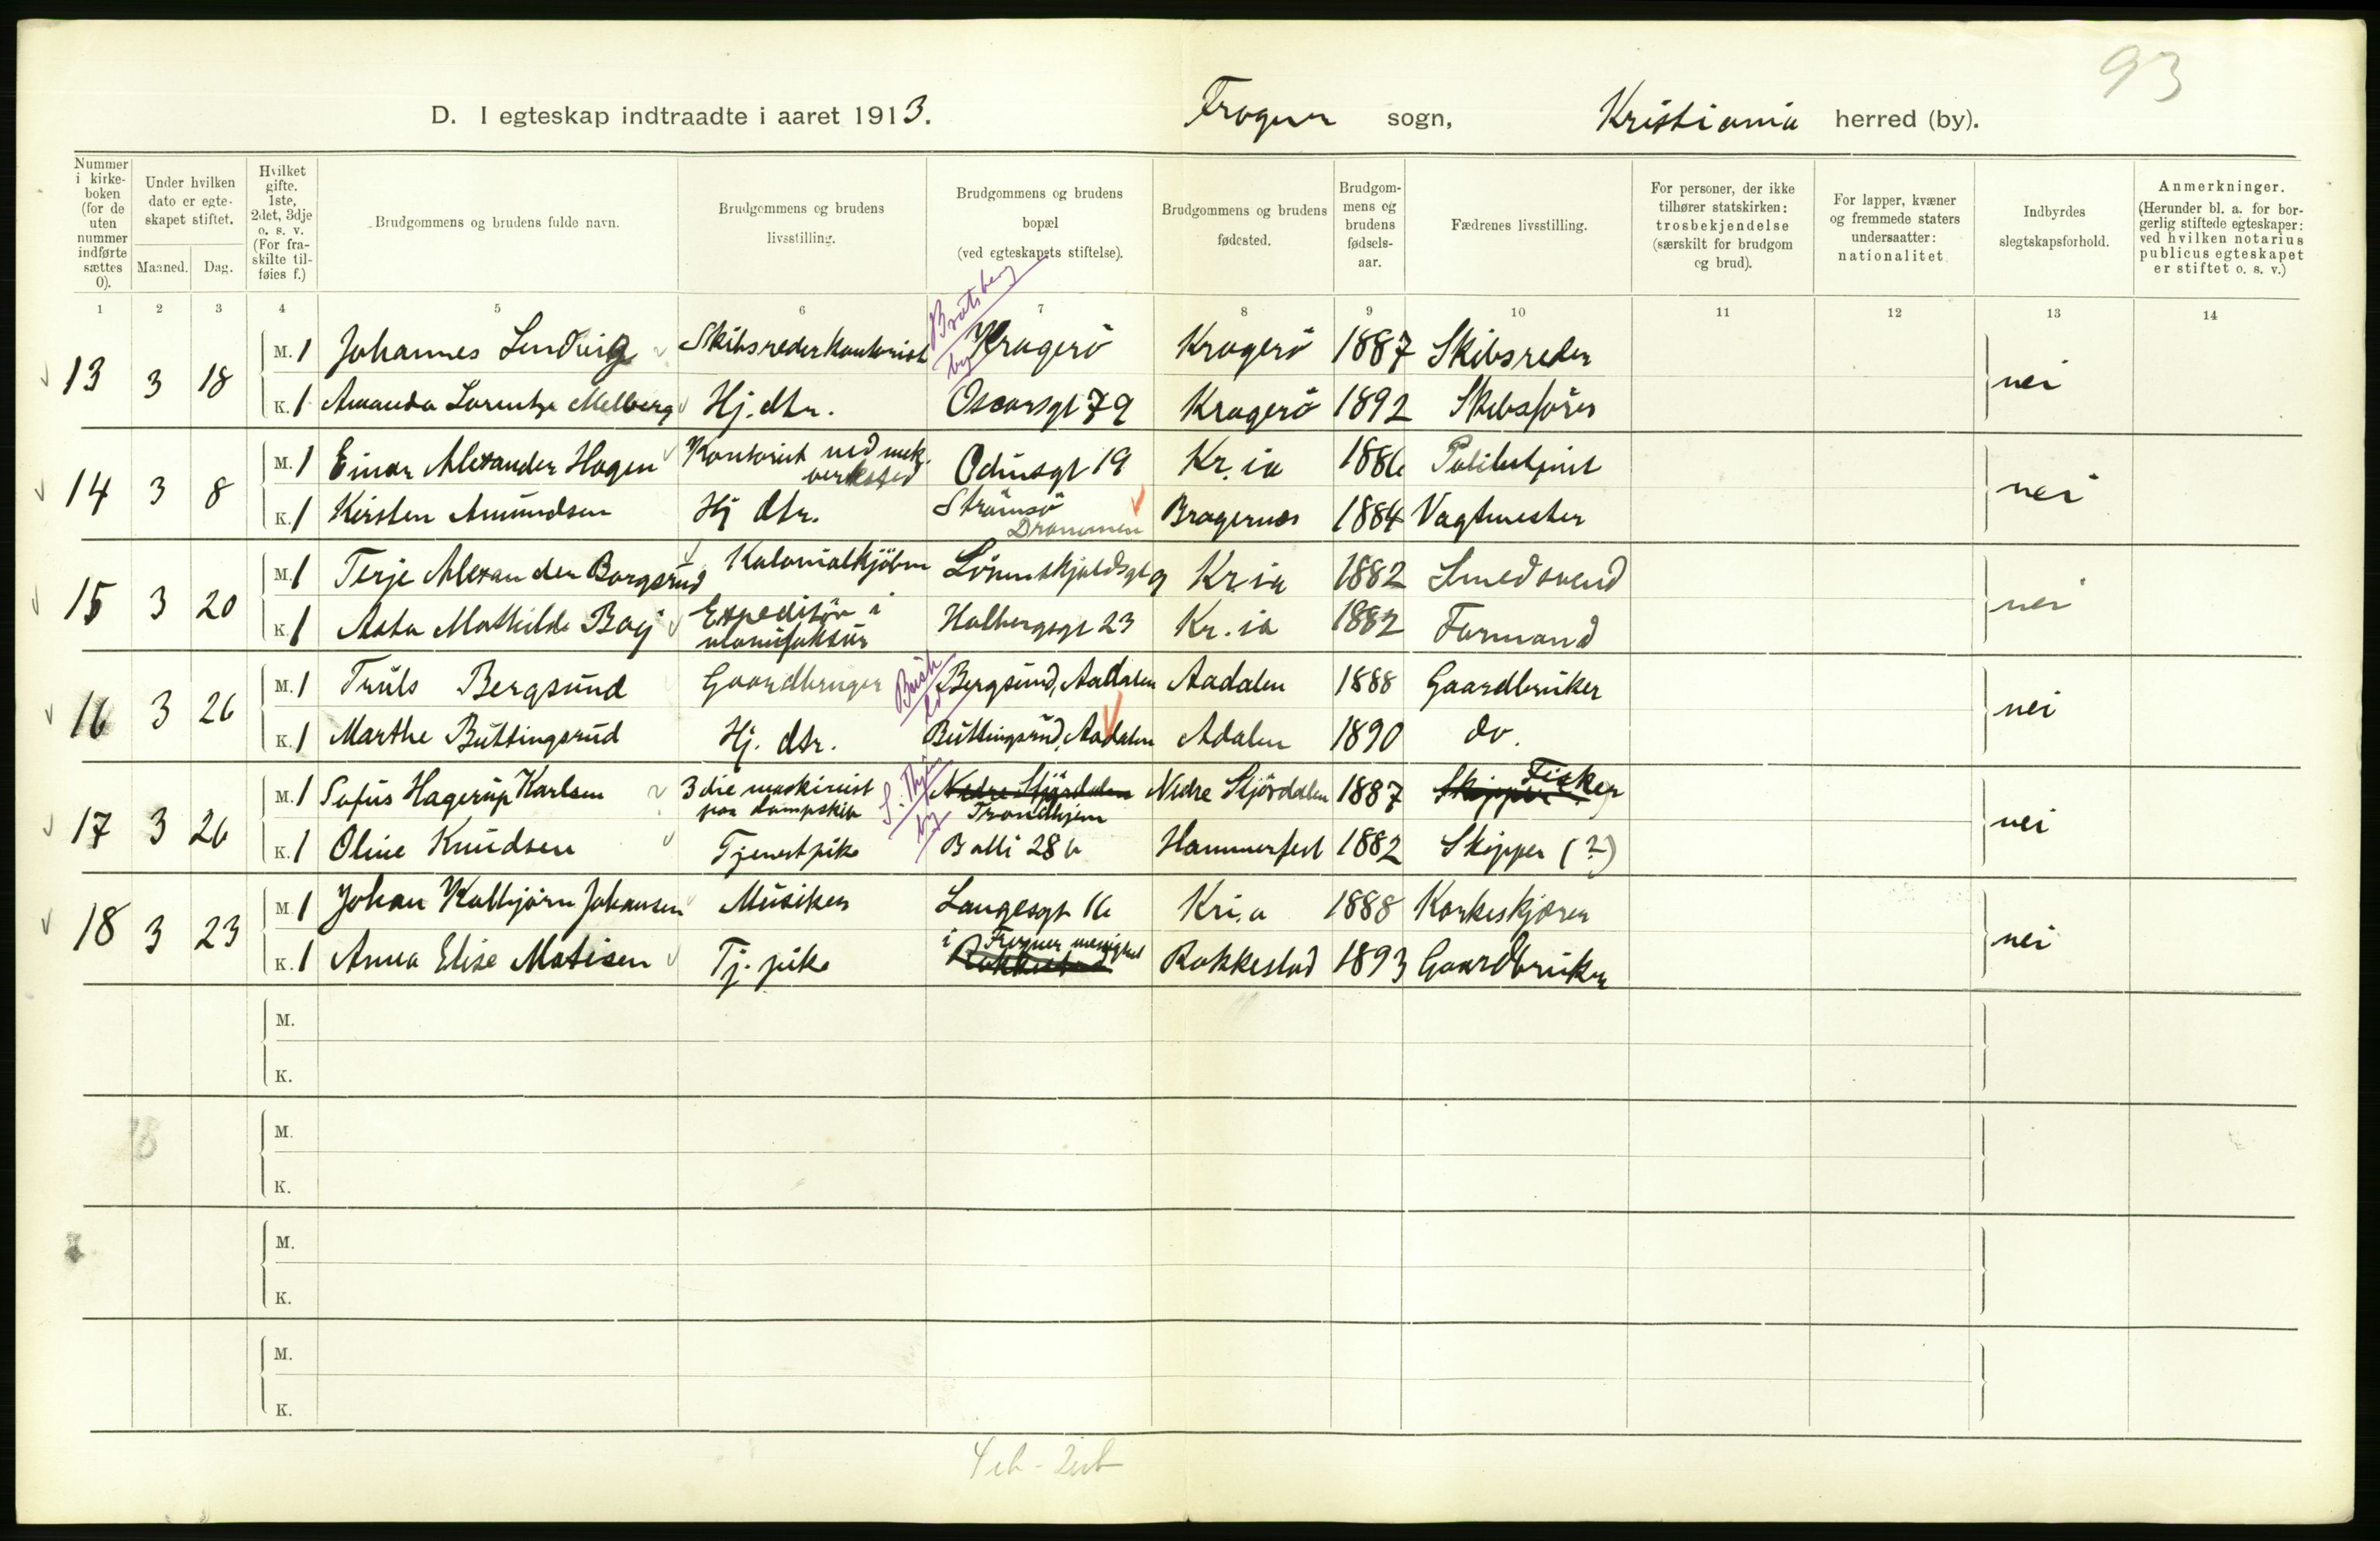 93
D. I egteskap indtraadte i aaret 1913. Frogner sogn, Kristiania herred (by).
Nummer i kirkeboken (for de uten nummer indførte sættes 0). Under hvilken dato er egteskapet stiftet. Maaned. Dag. Hvilket gifte. 1ste, 2det, 3dje o. s. v. (For fraskilte tilføies f.) Brudgommens og brudens fulde navn. Brudgommens og brudens livsstilling. Brudgommens og brudens bopæl (ved egteskapets stiftelse). Brudgommens og brudens fødested. Brudgommens og brudens fødselsaar. Fædrenes livsstilling. For personer, der ikke tilhører statskirken: trosbekjendelse (særskilt for brudgom og brud). For lapper, kvæner og fremmede staters undersaatter: nationalitet. Indbyrdes slegtskapsforhold. Anmerkninger. (Herunder bl. a. for borgerlig stiftede egteskaper: ved hvilken notarius publicus egteskapet er stiftet o. s. v.)
1 2 3 4 5 6 7 8 9 10 11 12 13 14
13 3 18 M. 1 Johannes Lindvig Skibsreder Kontorist Bratsberg by Kragerö Kragerö 1887 Skibsreder nei
K. 1 Amanda Lorentze Melberg Hj. dtr. Oscarsgt 79 Kragerö 1892 Skibsförer
14 3 8 M. 1 Einar Alexander Hagen Kontorist ved mek. verksted Odinsgt 19 Kr.ia 1886 Politibetjent nei
K. 1 Kirsten Amundsen Hj dtr. Strömsö Drammen Bragernes 1884 Vagtmester
15 3 20 M. 1 Terje Alexander Borgsrud Kolonialkjöbm Lövenskjoldsgt 9 Kr.ia 1882 Smedsvend nei
K. 1 Asta Mathilde Boij Expeditör i manufaktur Holbergsgt 23 Kr.ia 1882 Formand
16 3 26 M. 1 Truls Bergsund Gaardbruger Busk Bergsund, Aadalen Aadalen 1888 Gaardbruker nei
K. 1 Marthe Buttingsrud Hj. dtr. Buttingsrud, Aadalen Adalen 1890 do.
17 3 26 M. 1 Sofus Hagerup Karlsen 3die maskinist paa dampskib S. Thjem by Nedre Stjördalen Trondhjem Nedre Stjördalen 1887 Skipper Fisker nei
K. 1 Oline Knudsen Tjenestpike Balli 28 b Hammerfest 1882 Skipper (?)
18 3 23 M. 1 Johan Kolbjörn Johansen Musiker Langesgt 16 Kri.a 1888 Korkeskjærer nei
K. 1 Anna Elise Matisen Tj. pike i Frogner menighet Rakkestad Rakkestad 1893 Gaardbruker
M.
K.
18
M.
K.
M.
K.
M.
K.